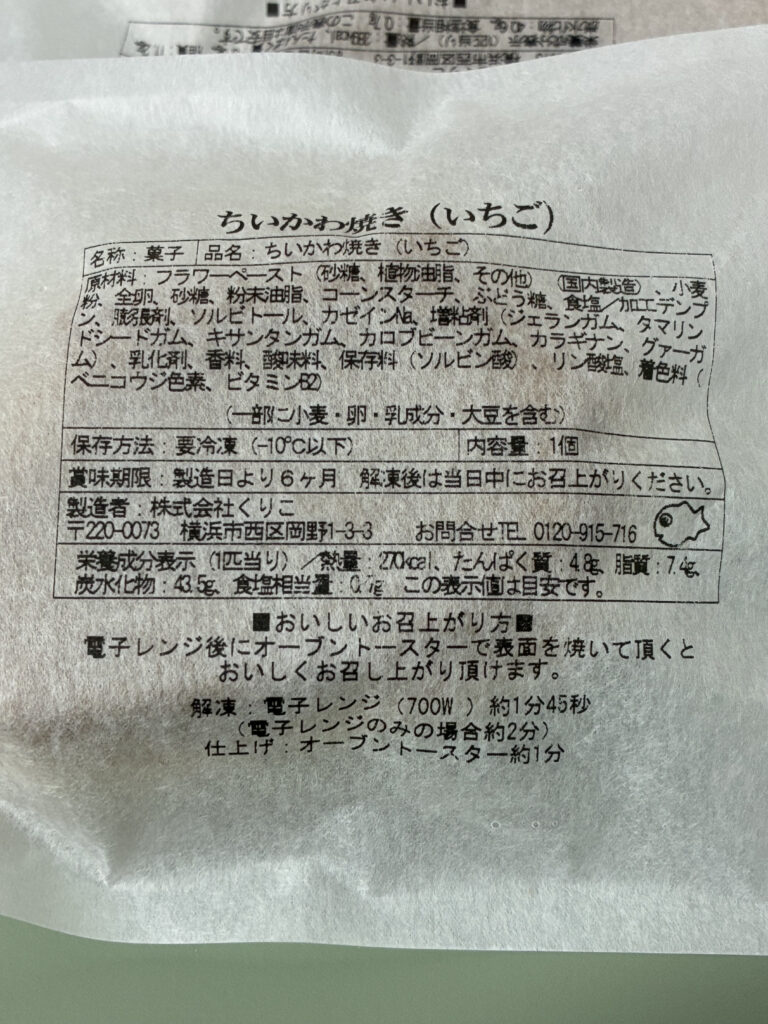 ちいかわ焼き（いちご）
名称：菓子 品名：ちいかわ焼き（いちご）
原材料：フラワーペースト（砂糖、植物油脂、その他）（国内製造）、小麦
粉、全卵、砂糖、粉末油脂、コーンスターチ、ぶどう糖、食塩／加工デンプ
ン、膨張剤、ソルビトール、カゼインNa、増粘剤（ジェランガム、タマリン
ドシードガム、キサンタンガム、カロブビーンガム、カラギナン、グァーガ
ム）、乳化剤、香料、酸味料、保存料（ソルビン酸）、リン酸塩、着色料（
ベニコウジ色素、ビタミンB2）
（一部に小麦・卵・乳成分・大豆を含む）
保存方法：要冷凍（-10℃以下） 内容量：1個
賞味期限：製造日より６ヶ月 解凍後は当日中にお召上がりください。
製造者：株式会社くりこ
〒220-0073 横浜市西区岡野1-3-3 お問合せTEL 0120-915-716
栄養成分表示（1匹当り）／熱量：270kcal、たんぱく質：4.8g、脂質：7.4g、
炭水化物：43.5g、食塩相当量：0.7g この表示値は目安です。
■おいしいお召上がり方■
電子レンジ後にオーブントースターで表面を焼いて頂くと
おいしくお召し上がり頂けます。
解凍：電子レンジ（700W ）約1分45秒
（電子レンジのみの場合約2分）
仕上げ：オーブントースター約1分